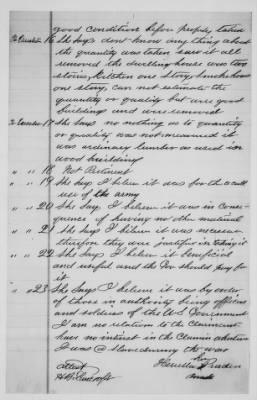 good condition before properly taken
To Question 16 She says dont know any thing about
the quantity was taken saw it all
removed the dwelling house was two
stories, Kitchen one story, smokehouse
one story, can not estimate the
quantity or quality but were good
buildings and were removed
To Question 17 She says no nothing as to quantity
or quality was not measured it
was ordinary lumber as used in
wood building
" " 18 Not Pertinent
" " 19 She says I believe it was for the actual
use of the army
" " 20 She says I believe it was in Conse-
quence of having no other material
" " 21 She says I believe it was necessary
therefore they were justified in taking it
" " 22 She says I believe it beneficial
and useful and the Gov should pay for
it
" " 23 She says I believe it was by order
of those in authority being officers
and soldiers of the U.S. Government
I am no relation to the claimant
have no interest in the Claim
I was
her
attest
mark